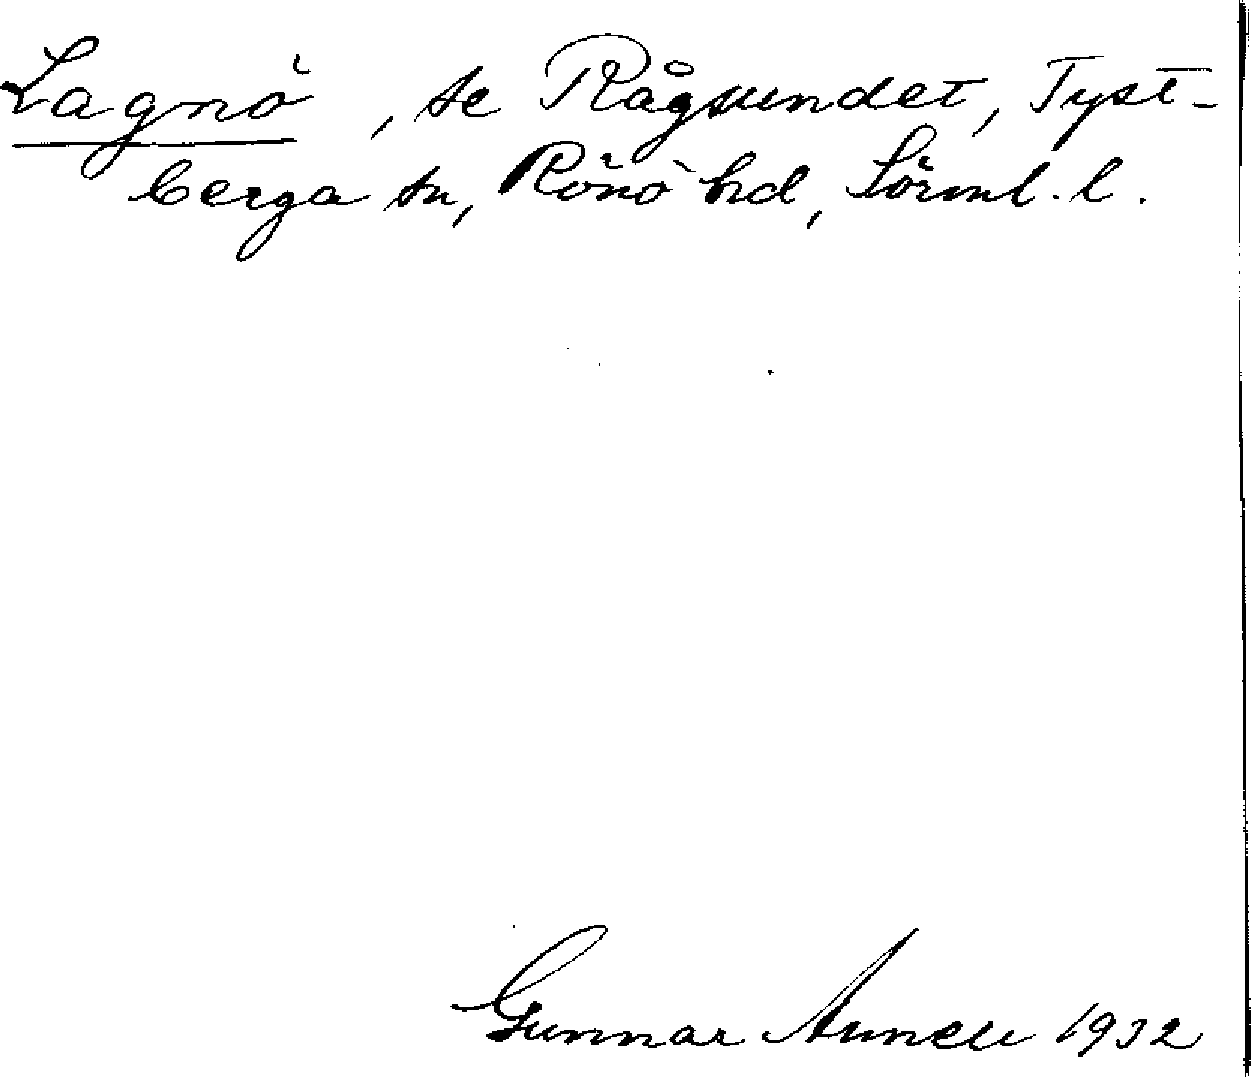 Lagnö, se Rågsundet, Tyst-
berga sn, Rönö hd, Sörml. l.
Gunnar Annell 1932